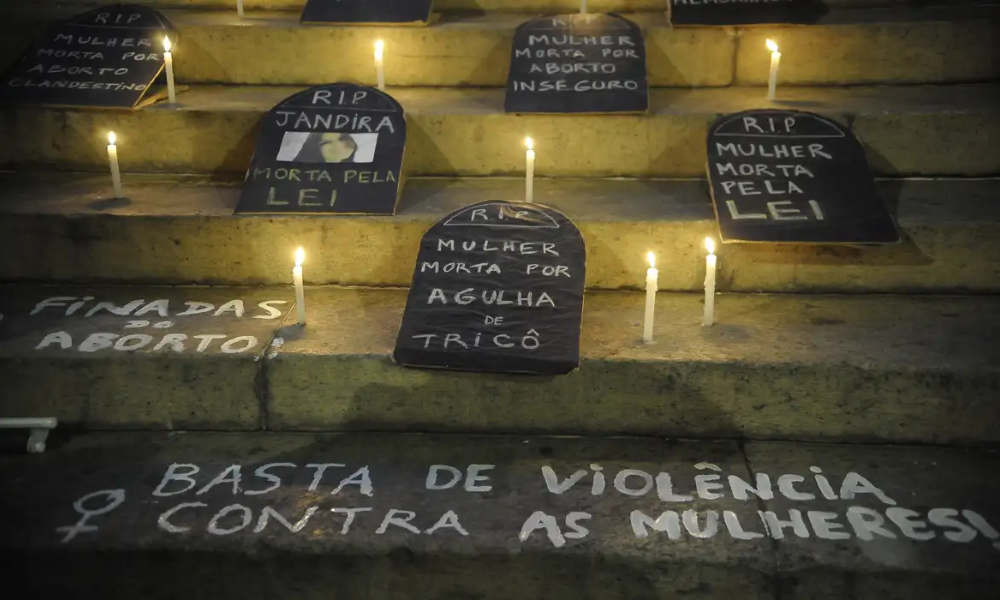 RIP
MULHER
MORTA POR
ABORTO
CLANDESTINO
RIP
MULHER
MORTA POR
ABORTO
INSEGURO
RIP
JANDIRA
MORTA PELA
LEI
RIP
MULHER
MORTA
PELA
LEI
RIP
MULHER
MORTA POR
AGULHA
DE
TRICÔ
FINADAS
DO
ABORTO
BASTA DE VIOLÊNCIA
CONTRA AS MULHERES!